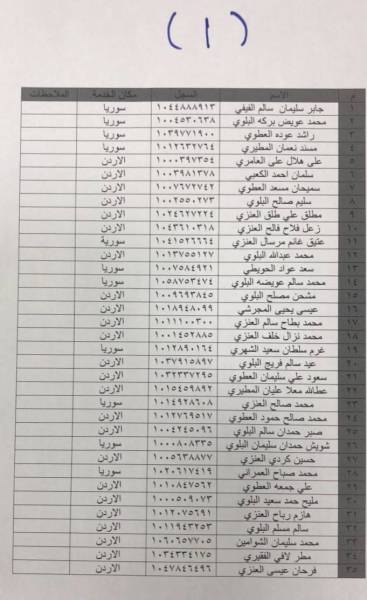 (١)
م الاسم السجل مكان الخدمة الملاحظات
١ جابر سليمان سالم الفيفي ١٠٤٤٨٨٨٩١٣ سوريا
٢ محمد عويض بركه البلوي ١٠٠٤٥٣٠٦٣٨ سوريا
٣ راشد عوده العطوي ١٠٣٩٧٧١٩٠٠ سوريا
٤ مسند نعمان المطيري ١٠١٢٦٣٢٧٦٤ سوريا
٥ علي هلال على العامري ١٠٠٠٣٩٧٣٥٤ الاردن
٦ سلمان احمد الكعبي ١٠٠٣٩٨١٣٧٨ الاردن
٧ سميحان مسعد العطوي ١٠٠٧٦٧٢٧٤٢ الاردن
٨ سليم صالح البلوي ١٠٠٢٥٥٠٢٧٣ الاردن
٩ مطلق علي طلق العنزي ١٠٢٤٦٢٧٢٢٤ الاردن
١٠ زعل فلاح فالح العنزي ١٠٤٣٦١٠٣١٨ الاردن
١١ عتيق غانم مرسال العنزي ١٠٤١٥٢٦٦٦٤ سورية
١٢ محمد عبدالله البلوي ١٠١٣٧٥٥١٢٧ الاردن
١٣ سعد عواد الحويطي ١٠٠٧٥٨٤٩٢١ سوريا
١٤ محمد سالم عويضه البلوي ١٠٥٨٧٥٣٤٧٤ سوريا
١٥ مشحن مصلح البلوي ١٠٠٩٦٩٣٨٤٥ الاردن
١٦ عيسى يحيى المجرشي ١٠١٨٩٤٨٠٩٩ الاردن
١٧ محمد بطاح سالم العنزي ١٠١١١٠٠٣٠٠ الاردن
١٨ محمد نزال خلف العنزي ١٠٠١٤٥٢٨٨٥ الاردن
غرم سلطان سعيد الشهري ١٠١٢٨٩٠١٦٤ سوريا
عيد سالم فريج البلوي ١٠٣٧٩١٥٨٩٧ الاردن
سعود علي سليمان العطوي ١٠٣٢٣٣٧٢٩٥ الاردن
عطالله معلا عليان المطيري ١٠١٥٤٥٩٨٩٢ الاردن
محمد صالح العنزي ١٠١٤٩٢٨٦٠٨ سوريا
محمد صالح حمود العطوي ١٠١٢٧٦٩٥١٧ الاردن
صبر حمدان سالم البلوي ١٠٠٤٢٤٥٠٩٦ الاردن
شويش حمدان سليمان البلوي ١٠٠٠٨٠٨٣٣٥ سوريا
حسين كردي العنزي ١٠٠٥٦٣٨٨٧٧ الاردن
محمد صباح العمراني ١٠٢٠٦١٧٤١٩ سوريا
علي جمعه العطوي ١٠١٠٨٤٧٥٦٢ الاردن
مليح حمد سعيد البلوي ١٠٠٠٥٠٩٠٧٣ الاردن
٣١ هازم رباح العنزي ١٠١٢٠٧٥٦٩١ الاردن
٣٢ سالم مسلم البلوي ١٠١١٩٤٣٢٥٣ الاردن
٣٣ محمد سليمان الشوامين ١٠٦٠٦٥٧٧٠٥ الاردن
٣٤ مطر لافي الفقيري ١٠٣٤٣٣٤١٧٥ الاردن
٣٥ فرحان عيسى العنزي ١٠٤٧٨٤٦٤٩٦ الاردن